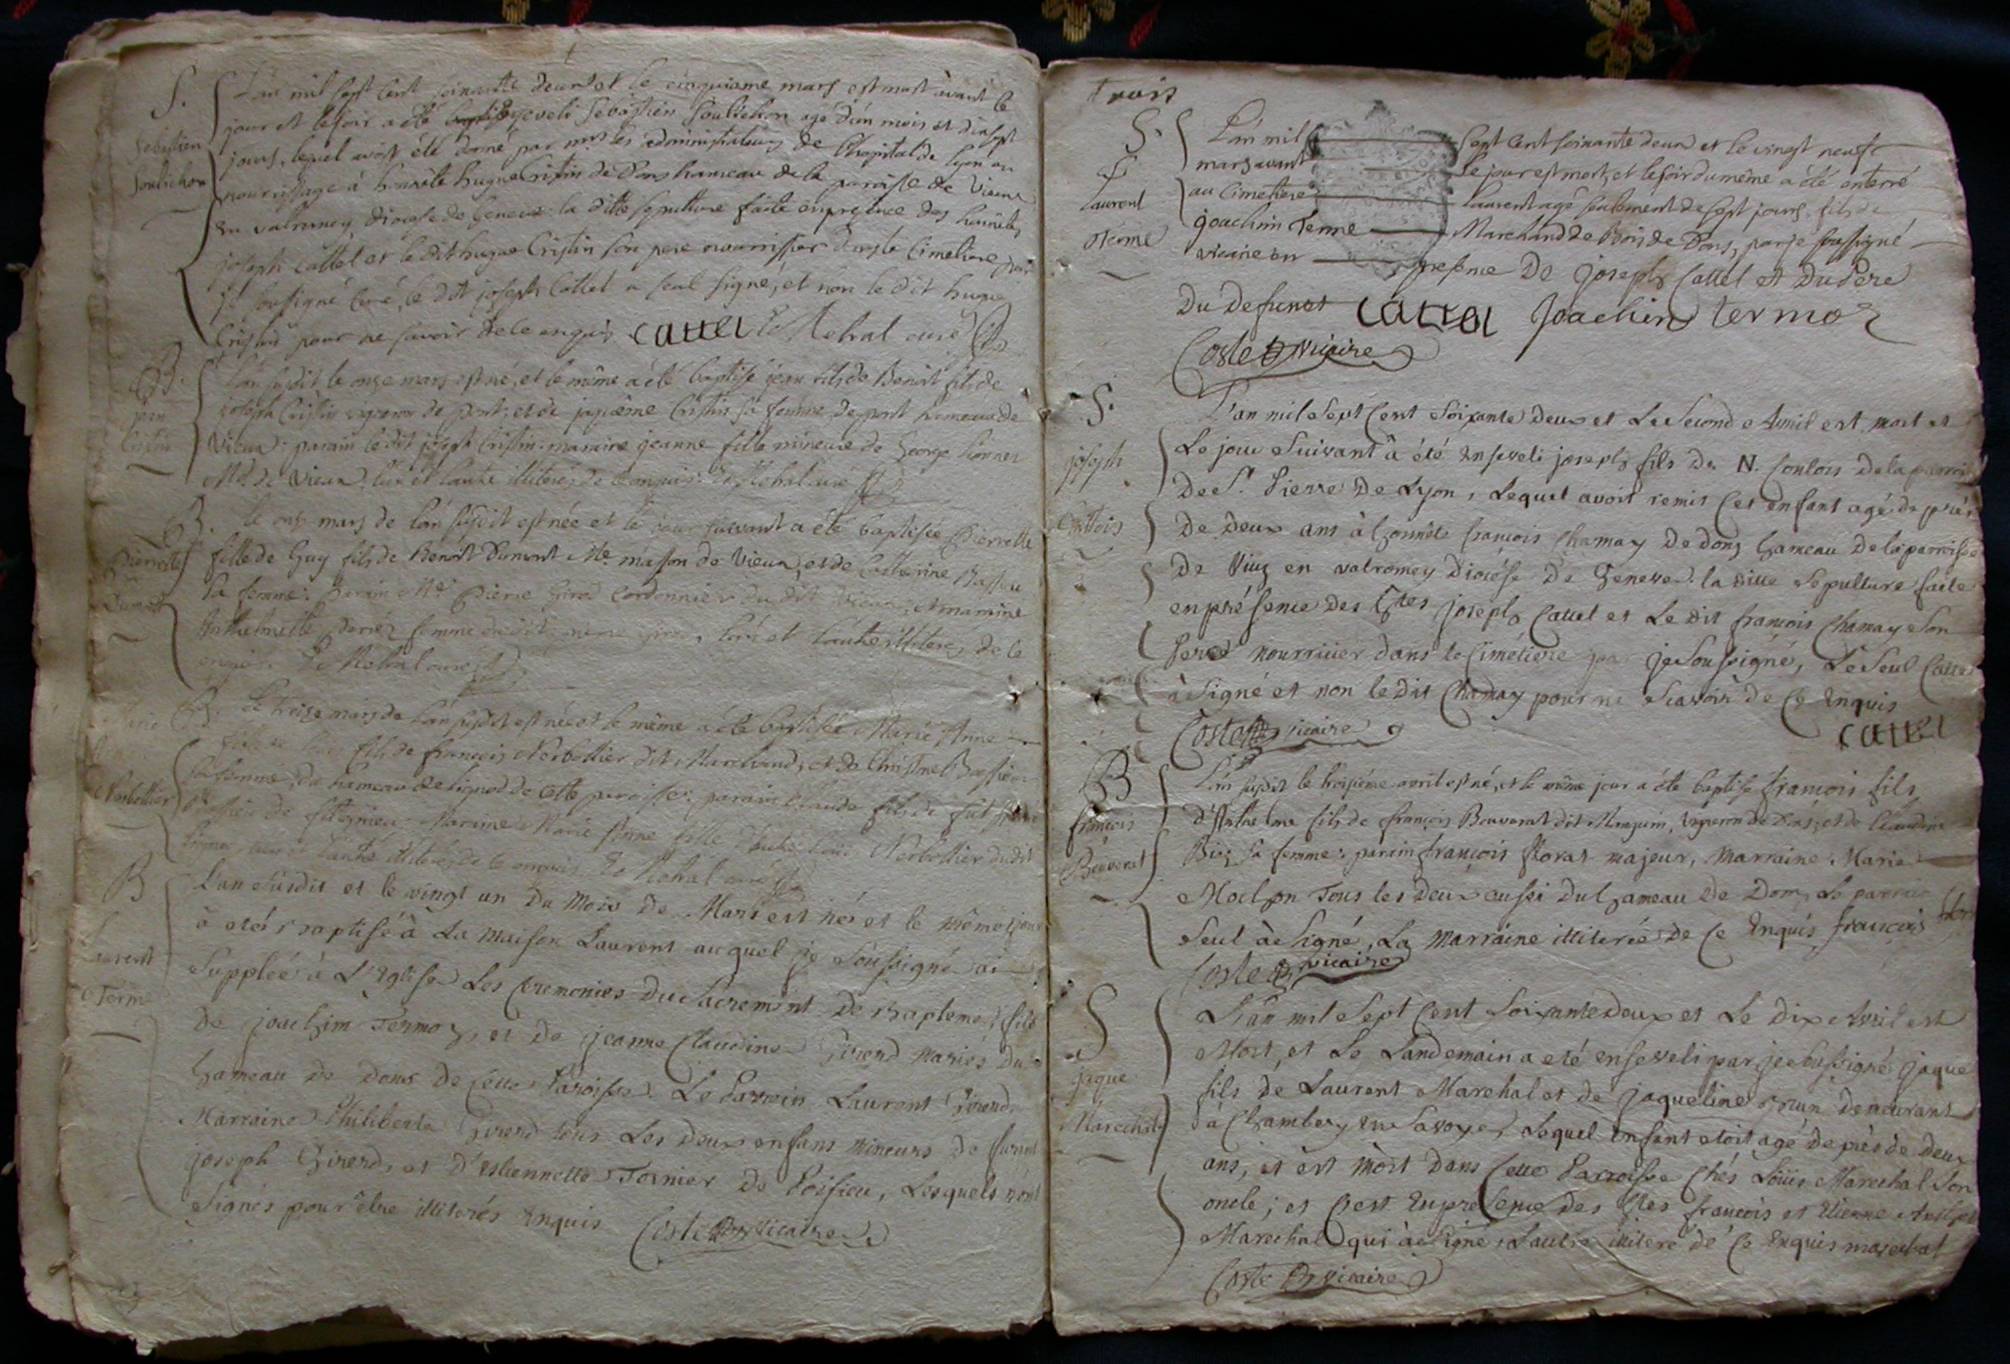 S.
Sebastien
Soulichon
L'an mil sept cent soixante deux et le cinquieme mars est mort avant le
jour et le soir a été enseveli Sebastien Soulichon agé d'un mois et dix sept
jours, lequel avoit été donné par mrs les administrateurs de l'hopital de Lyon en
nourrissage à honnête hugue Cristin de Dons hameau de la paroisse de Vieux
en valromey, Diocese de Geneve. la ditte sepulture faite en presence des honnêtes
joseph Cattel et le dit hugue Cristin son pere nourrissier dans le Cimetiere par
je soussigné Curé, le dit joseph Cattel a seul signé, et non le dit hugue
Cristin pour ne savoir de ce enquis Cattel Mehral curé
B.
jean
Cristin
L'an susdit le onze mars est né, et le même a été baptisé jean fils de Benoît fils de
joseph Cristin vigneron de pont, et de Cristin sa femme, de pont hameau de
Vieux. parain le dit joseph Cristin. maraine jeanne fille mineure de George
Md. de Vieux, l'un et l'autre illiterés de ce enquis. Mehral curé
B.
Pierrette
Dumont
Le onze mars de l'an susdit est née et le jour suivant a été baptisée Pierrette
fille de Guy fils de Benoît Dumont Me. masson de Vieux, et de Catherine
sa femme. Parain Me Pierre Girod Cordonnier du dit Vieux. Maraine
femme du dit l'un et l'autre illiteres de ce
enquis. Mehral curé
B.
Marie
Anne
Norbollier
Le treize mars de l'an susdit est née et le même a été baptisée Marie Anne
fille de fils de françois Norbollier dit Marchand, et de Christine
sa femme, du hameau de de cette paroisse. parain Claude fils de fut
Maraine Marie Anne fille Norbollier du dit
l'un et l'autre illiterés de ce enquis. Mehral curé
B
Laurent
Termo
L'an susdit et le vingt un du Mois de Mars est nés et le même jour
à etés baptisé à La maison Laurent auquel je Soussigné ai
Suppleé à L'Eglise Les Ceremonies du Sacrement de Bapteme, fils
de joachim Termoz, et de jeanne Claudine Girerd mariés du
hameau de Dons de Cette Paroisse. Le Parrein Laurent Girerd
Marraine Philiberte Girerd tous Les deux enfans mineurs de furent
joseph Girerd, et d'Estiennette Tornier de Poisieu, Lesquels n'ont
Signés pour être illiterés Enquis Coste vicaire
trois
S.
Laurent
Terme
L'an mil Sept cent soixante deux et le vingt neuf
mars avant le jour est mort, et le soir du même a été enterré
au Cimetiere Laurent agé seulement de sept jours, fils de
joachim Terme Marchand de Bois de Dons, par je soussigné
vicaire en presence De joseph Cattel et Du Pere
Du Defunct Cattel Joachim termoz
Coste vicaire
S.
joseph
Contois
L'an mil Sept Cent Soixante Deux et Le Second Avril est mort et
Le jour Suivant à été Enseveli joseph fils De N. Contois De la parroisse
De St. Pierre De Lyon, Lequel avoit remis Cet enfant agé de près
De Deux ans à honnête françois Chamay De dons hameau De la parroisse
De Viuz en valromey Diocése De Geneve. la ditte Sepulture faite
en présence des joseph Cattel et Le dit françois Chamay Son
Pere nourricier dans le Cimétiere par je Soussigné, Le Seul Cattel
à Signé et non le dit Chamay pour ne Scavoir de Ce Enquis
Cattel
Coste vicaire
B
françois
Bouverat
L'an susdit le troisième avril est né, et le même jour a été baptisé françois fils
d'Anthelme fils de françois Bouverat dit Manquin, vigneron de Dons, et de Claudine
sa femme. parain françois florat majeur, Marraine Marie
Mochon Tous les deux aussi Du hameau De Dons, Le parrein
Seul à Signé, La Marraine illiterée De Ce Enquis françois florat
Coste vicaire
S
jaque
Marechal
L'an mil Sept Cent Soixante deux et Le Dix Avril est
Mort, et Le Landemain a été enseveli par je soussigné jaque
fils dé Laurent Marechal et de jaqueline Brun demeurant
à Chambery en Savoye, Lequel enfant etoit agé de près de deux
ans, et est Mort Dans Cette Parroisse Chés Loüis Marechal Son
oncle; et C'est En présence des françois et Etienne
Marechal qui à Signé, L'autre illiteré de Ce Enquis marechal
Coste vicaire